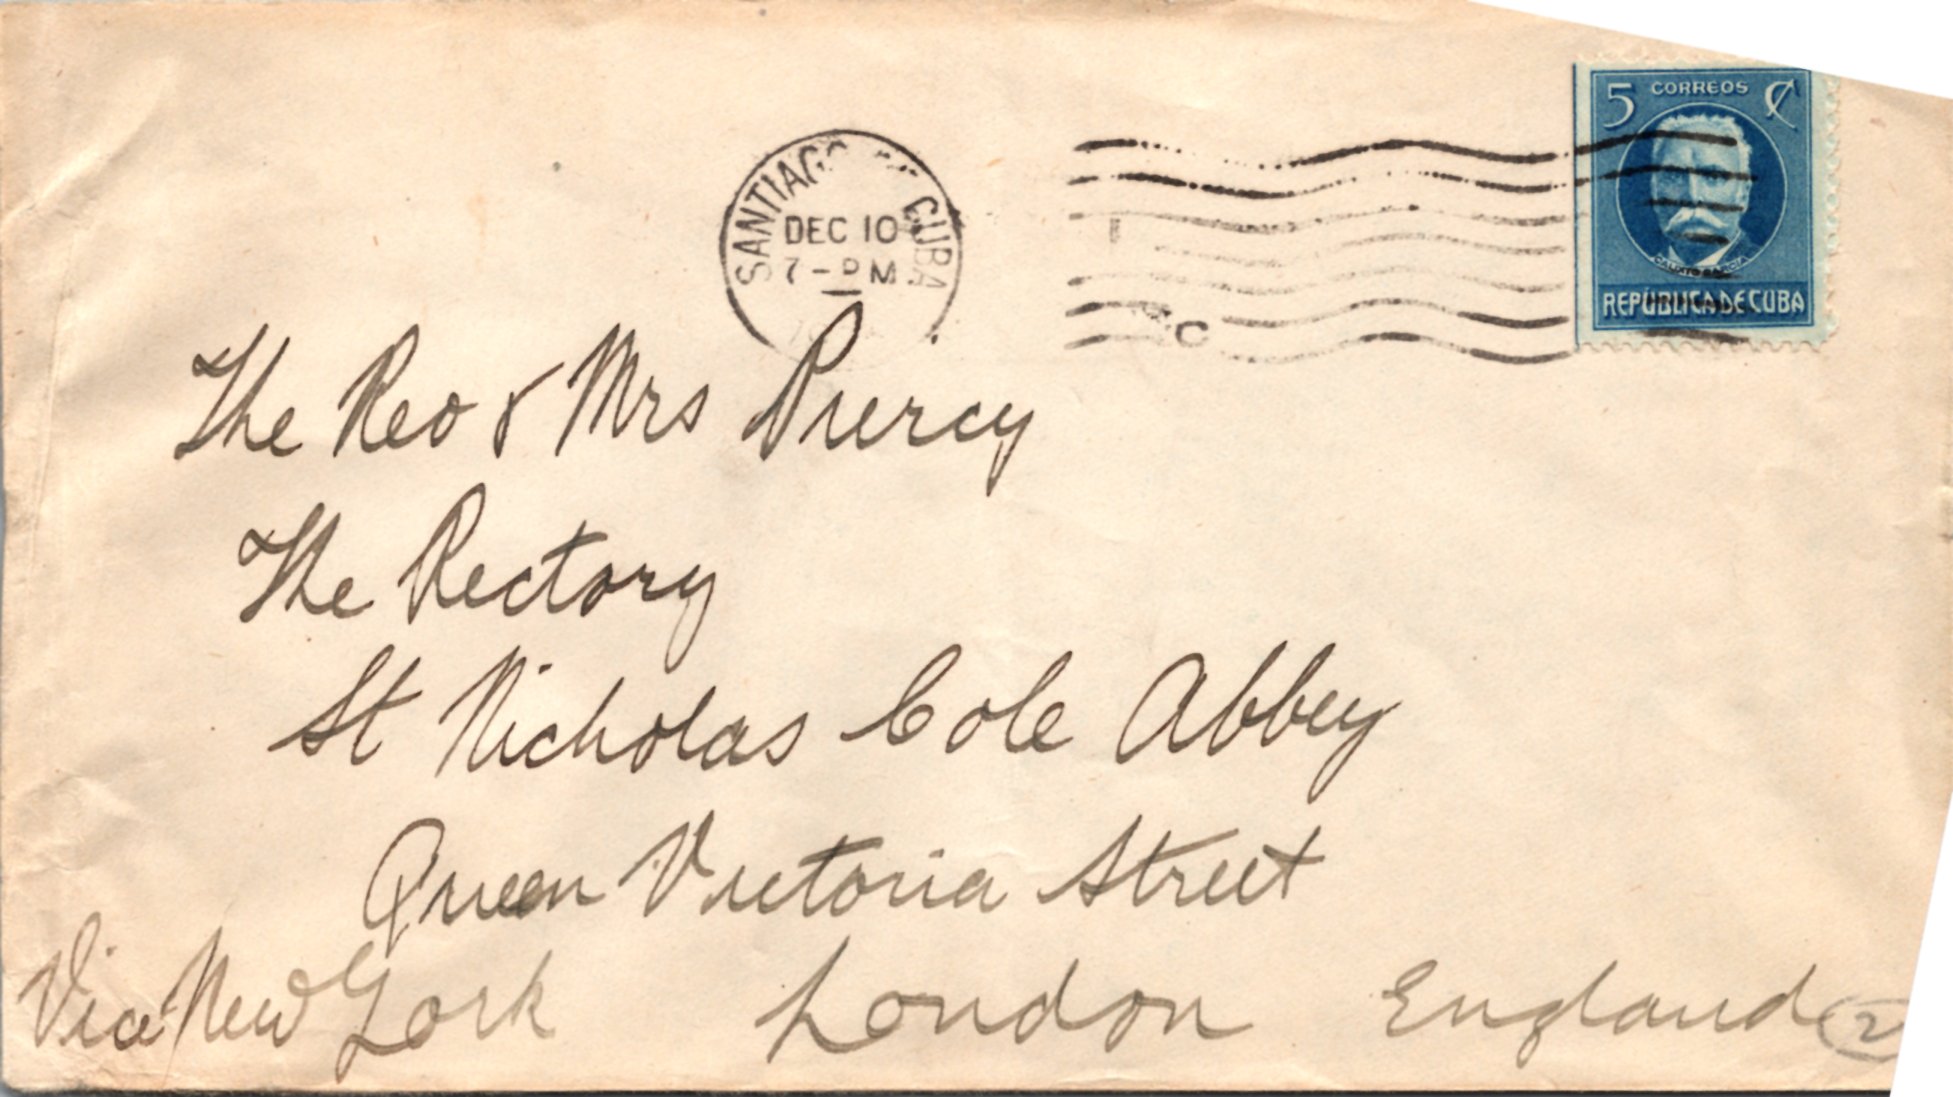 5 CORREOS ¢
CALIXTO GARCIA
REPÚBLICA DE CUBA
SANTIAGO CUBA
DEC 10
7 - PM
The Rev & Mrs Piercy
The Rectory
St Nicholas Cole Abbey
Queen Victoria Street
Via New York London England 2